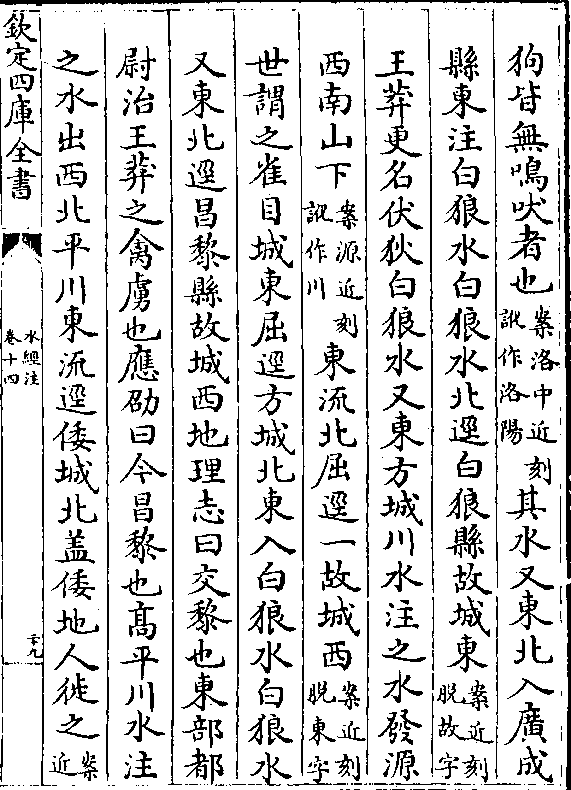 狗皆無鳴吠者也案洛中近刻訛作洛陽其水又東北入廣成
縣東注白狼水白狼水北逕白狼縣故城東案近刻脫故字
王莽更名伏狄白狼水又東方城川水注之水發源
西南山下案源近刻訛作川東流北屈逕一故城西案近刻脫東字
世謂之雀目城東屈逕方城北東入白狼水白狼水
又東北逕昌黎縣故城西地理志曰交黎也東部都
尉治王莽之禽虜也應劭曰今昌黎也髙平川水注
之水出西北平川東流逕倭城北盖倭地人徙之案近
欽定四庫全書
水經注
卷十四
二十九